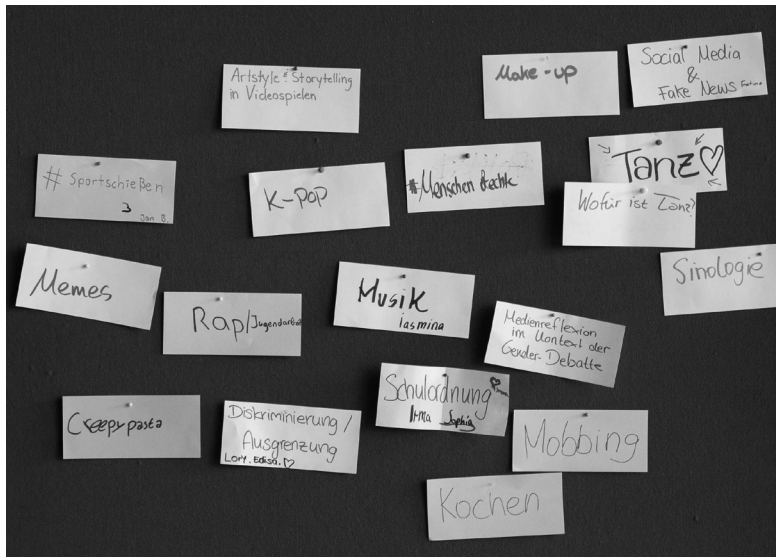 Artstyle & Storytelling
in Videospielen
Make-up
Social Media
&
Fake News Fatima
# Sportschießen
3
Jan B.
K-Pop
#Menschenrechte
Tanz♡
Wofür ist Tanz?
Sinologie
Memes
Rap/Jugendarbeit
Musik
iasmina
Medienreflexion
im Kontext der
Gender-Debatte
Creepypasta
Diskriminierung/
Ausgrenzung
Lory. Edisa. ♡
Schulordnung
Irma Sophia
Mobbing
Kochen